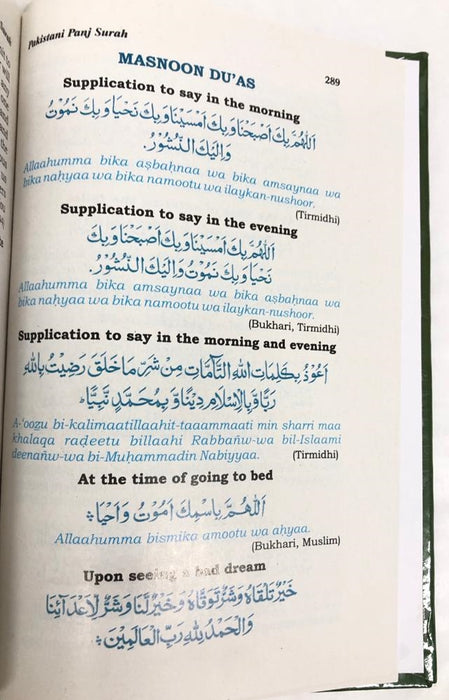 Pakistani Panj Surah
MASNOON DU'AS
289
Supplication to say in the morning
اَللّٰهُمَّ بِكَ اَصْبَحْنَا وَبِكَ اَمْسَيْنَا وَبِكَ نَحْيَا وَبِكَ نَمُوْتُ
وَاِلَيْكَ النُّشُوْرُ.
Allaahumma bika aṣbaḥnaa wa bika amsaynaa wa
bika naḥyaa wa bika namootu wa ilaykan-nushoor.
(Tirmidhi)
Supplication to say in the evening
اَللّٰهُمَّ بِكَ اَمْسَيْنَا وَبِكَ اَصْبَحْنَا وَبِكَ
نَحْيَا وَبِكَ نَمُوْتُ وَاِلَيْكَ النُّشُوْرُ.
Allaahumma bika amsaynaa wa bika aṣbaḥnaa wa
bika naḥyaa wa bika namootu wa ilaykan-nushoor.
(Bukhari, Tirmidhi)
Supplication to say in the morning and evening
اَعُوْذُ بِكَلِمَاتِ اللّٰهِ التَّآمَّاتِ مِنْ شَرِّ مَا خَلَقَ رَضِيْتُ بِاللّٰهِ
رَبًّا وَّ بِالْاِسْلَامِ دِيْنًا وَّ بِمُحَمَّدٍ نَّبِيًّا
A-'oozu bi-kalimaatillaahit-taaammaati min sharri maa
khalaqa raḍeetu billaahi Rabbañw-wa bil-Islaami
deenañw-wa bi-Muḥammadin Nabiyyaa.
(Tirmidhi)
At the time of going to bed
اَللّٰهُمَّ بِاسْمِكَ اَمُوْتُ وَ اَحْيَا
Allaahumma bismika amootu wa aḥyaa.
(Bukhari, Muslim)
Upon seeing a bad dream
خَيْرٌ تَلْقَاهُ وَشَرٌّ تَوَقَّاهُ وَخَيْرٌ لَّنَا وَشَرٌّ لِاَعْدَآئِنَا
وَالْحَمْدُ لِلّٰهِ رَبِّ الْعَالَمِيْنَ